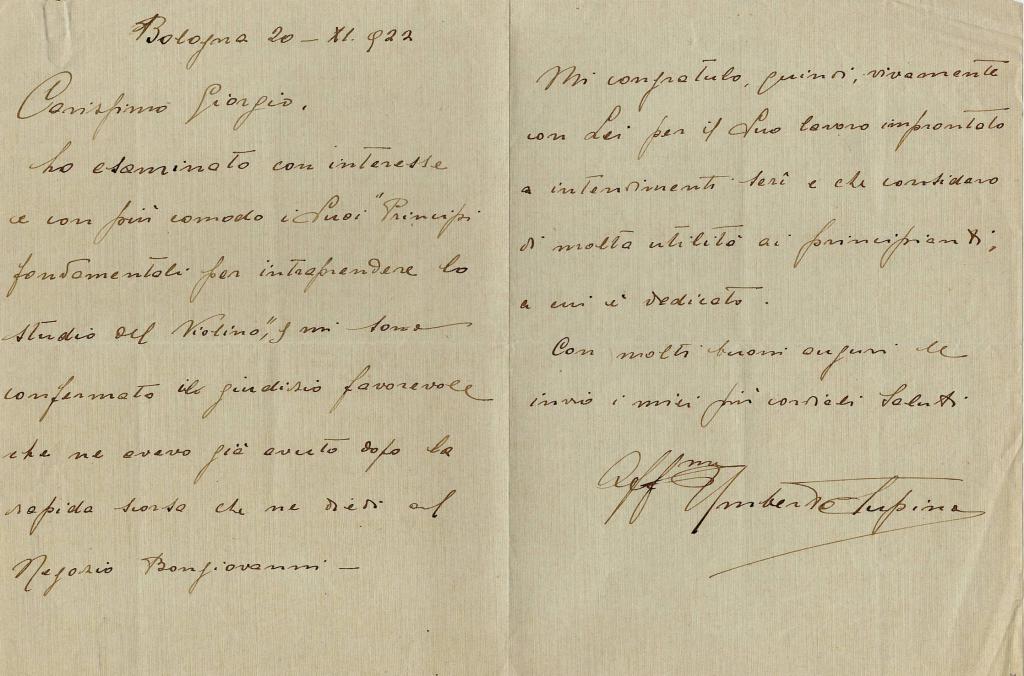 Bologna 20 - XI. 922
Carissimo Giorgio,
ho esaminato con interesse
e con più comodo i Suoi "Principi
fondamentali per intraprendere lo
studio del Violino", e mi sono
confermato il giudizio favorevole
che ne avevo già avuto dopo la
rapida scorsa che ne diedi al
Negozio Bongiovanni -
Mi congratulo, quindi, vivamente
con Lei per il Suo lavoro improntato
a intendimenti seri e che considero
di molta utilità ai principianti,
a cui è dedicato.
Con molti buoni auguri le
invio i miei più cordiali saluti
Aff.mo Umberto Supino